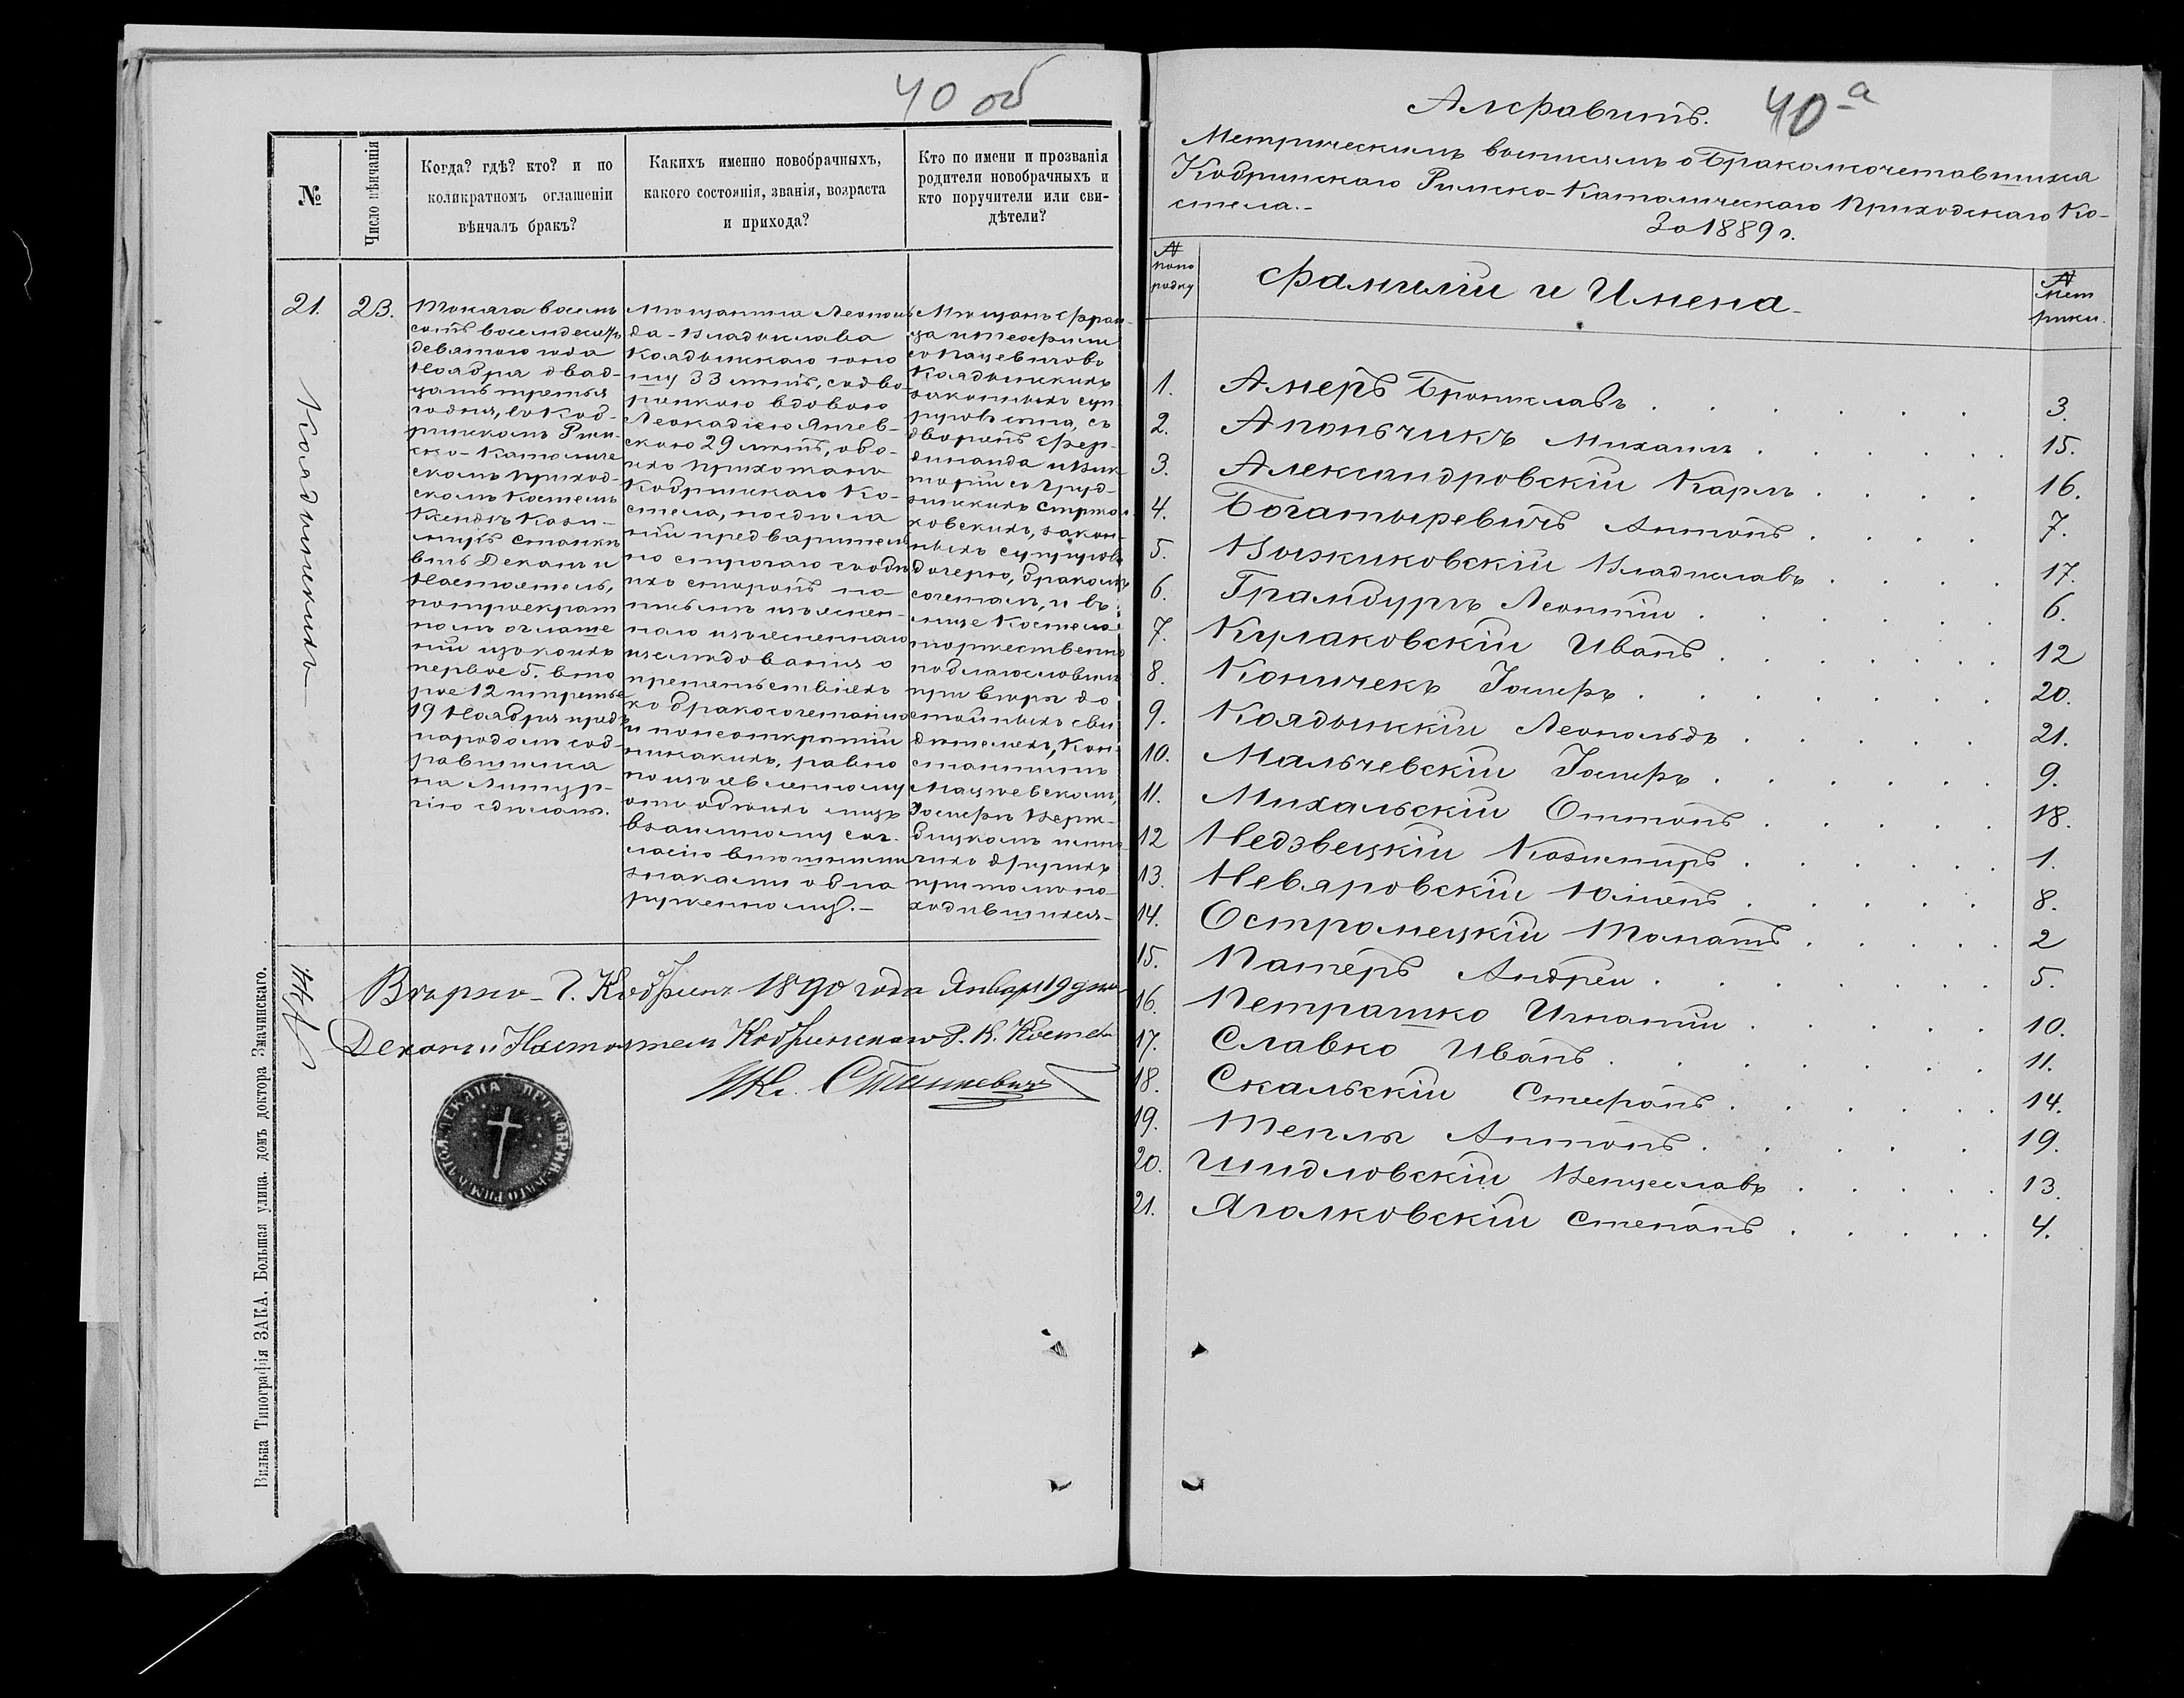 40 об
№
Число вѣнчанія
Когда? гдѣ? кто? и по
коликратномъ оглашеніи
вѣнчалъ бракъ?
Какихъ именно новобрачныхъ,
какого состоянія, званія, возраста
и прихода?
Кто по имени и прозванія
родители новобрачныхъ и
кто поручители или сви-
дѣтели?
21.
Колдынскихъ
23.
Тысяча восемь
сотъ восемдесятъ
девятого года
Ноября двад-
цать третья
го дня, въ Коб-
ринскомъ Рим-
ско-Католиче
скомъ Приход-
скомъ Костелѣ
Ксендзъ Кази-
миръ Станке
вичъ Деканъ и
Настоятель,
по троекрат
номъ оглаше
ніи изъ коихъ
первое 5. вто
рое 12 и третье
19 Ноября предъ
народомъ соб-
равшимся
на Литур-
гію сдѣланы.
Мѣщанина Леополь
да-Владислава
Колдынскаго юно
шу 33 лѣтъ, съ дво
рянкою вдовою
Леокадіею
скою 29 лѣтъ, обо-
ихъ прихожанъ
Кобринскаго Ко-
стела, по сдѣла
ніи предварительн
но строгаго съ обѣ
ихъ сторонъ на
письмѣ изъяснен-
наго изъясненнаго
изслѣдованія о
препятствіяхъ
къ бракосочетанію
и по неоткрытіи
никакихъ, равно
по изъявленному
ото обоихъ лицъ
взаимному сог-
ласію внѣшними
знаками обна
руженному.-
Мѣщанъ Фран-
ца и Теофили
съ Пацевичовъ
Колдынскихъ
законныхъ суп
руговъ сына, съ
дворянъ Фер-
динанда и Вик
торіи съ Груд-
зинскихъ
ковскихъ, закон-
ныхъ супруговъ
дочерью, бракомъ
сочеталъ, и въ
лице Костела
торжественно
поблагословилъ
при вѣры до
стойныхъ сви
дѣтеляхъ, Кон-
стантинѣ
Мацѣевскомъ,
Іосифѣ
и мно-
гихъ другихъ
при томъ на-
ходившихся-
Вѣрно - Г. Кобринъ 1890 года Января 19 дня
Деканъ и Настоятель Кобринскаго Р. К. Костела
Кс. Станкевичъ
Вильна Типографія ЗАКА, Большая улица, домъ доктора Змачинскаго.
40 а
Алфавитъ.
Метрическимъ выписямъ о Бракосочетавшихся
Кобринскаго Римско-Католическаго Приходскаго Ко-
стела.-
За 1889 г.
№ по по рядку
Фамиліи и Имена
№ мет рики.
1. Амеръ Брониславъ 3.
2. Апоньчикъ Михаилъ 15.
3. Александровскій Карлъ 16.
4. Богатыревичъ Антонъ 7.
5. Выжиковскій Владиславъ 17.
6. Грамбургъ Леонтій 6.
7. Кулаковскій Иванъ 12
8. Коничекъ Іосифъ 20.
9. Колдынскій Леопольдъ 21.
10. Мальчевскій Іосифъ 9.
11. Михальскій Оттонъ 18.
12 Недзвецкій Казимиръ 1.
13. Невяровскій Юліанъ 8.
14. Остромецкій Томашъ 2
15. Патеръ Андрей 5.
16. Петрашко Игнатій 10.
17. Славко Иванъ 11.
18. Скальскій Стефанъ 14.
19. Теплы Антонъ 19.
20. Шидловскій Венцеславъ 13.
21. Яголковскій Степанъ 4.